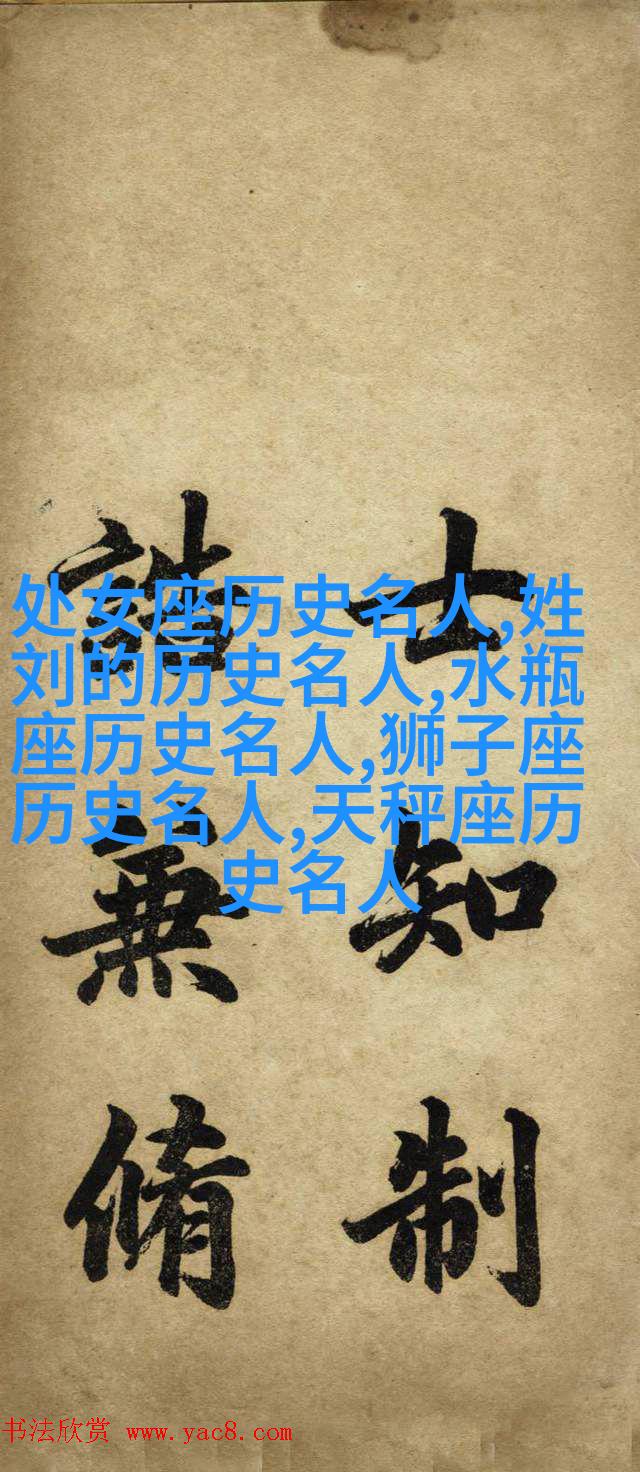 处女座历史名人,姓
刘的历史名人,水瓶
座历史名人,狮子座
历史名人,天秤座历
史名人
士知制
誥兼脩
书法欣赏 www.yac8.com